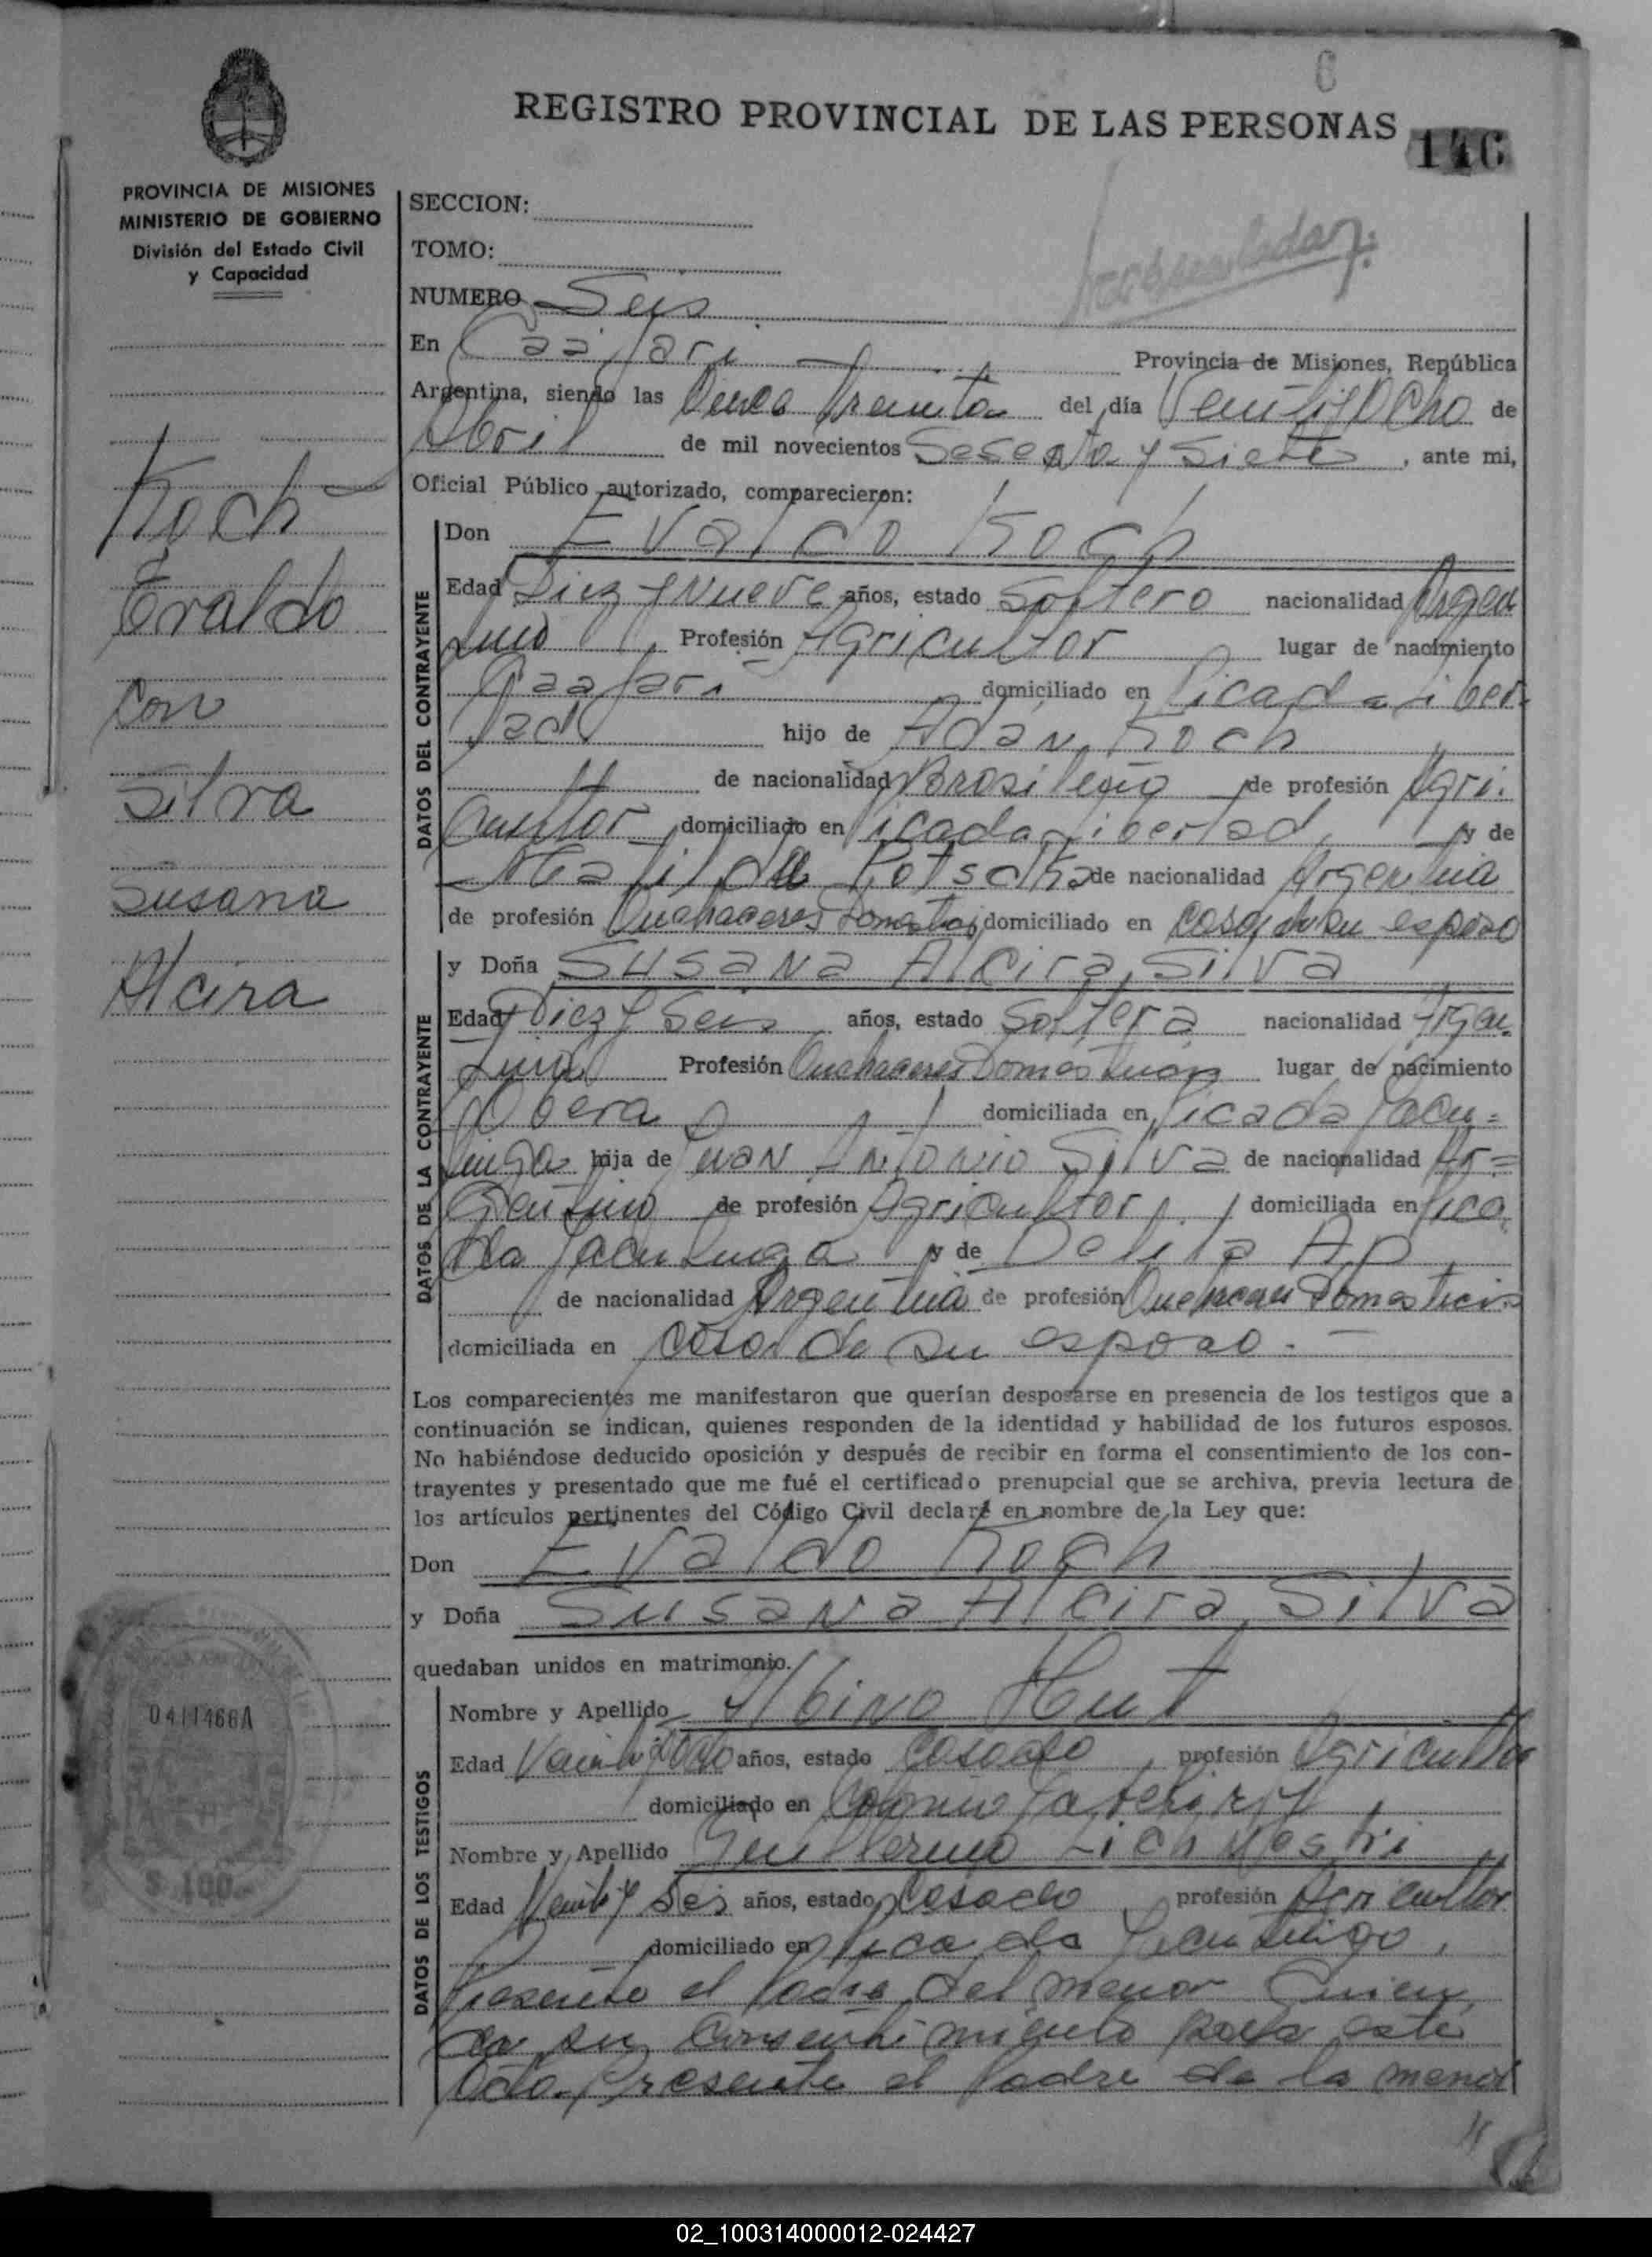 6
REGISTRO PROVINCIAL DE LAS PERSONAS
146
PROVINCIA DE MISIONES
MINISTERIO DE GOBIERNO
División del Estado Civil
y Capacidad
Koch
Evaldo
con
Silva
Susana
Alcira
0411466A
$ 100
SECCION:
TOMO:
NUMERO Seis
En Caa Yari Provincia de Misiones, República
Argentina, siendo las Treinta del día Veintiy Ocho de
Abril de mil novecientos Sesenta y Siete, ante mi,
Oficial Público autorizado, comparecieron:
DATOS DEL CONTRAYENTE
Don Evaldo Koch
Edad Diez y Nueve años, estado Soltero nacionalidad Argen
tino Profesión Agricultor lugar de nacimiento
Caa Yari domiciliado en Picada Liber
tad hijo de Adan Koch
de nacionalidad Brasileño de profesión Agri
cultor domiciliado en Picada Libertad y de
de nacionalidad Argentina
de profesión Quehaceres Domesticos domiciliado en casa de su esposo
DATOS DE LA CONTRAYENTE
y Doña Susana Alcira Silva
Edad Diez y Seis años, estado Soltera nacionalidad Argen
tina Profesión Quehaceres Domesticos lugar de nacimiento
Obera domiciliada en Picada Yacu=
tinga hija de Juan Antonio Silva de nacionalidad Ar=
gentino de profesión Agricultor domiciliada en Pica
da Yacutinga y de Delia
de nacionalidad Argentina de profesión Quehaceres Domesticos
domiciliada en casa de su esposo.-
Los comparecientes me manifestaron que querían desposarse en presencia de los testigos que a
continuación se indican, quienes responden de la identidad y habilidad de los futuros esposos.
No habiéndose deducido oposición y después de recibir en forma el consentimiento de los con-
trayentes y presentado que me fué el certificado prenupcial que se archiva, previa lectura de
los artículos pertinentes del Código Civil declaré en nombre de la Ley que:
Don Evaldo Koch
y Doña Susana Alcira Silva
quedaban unidos en matrimonio.
DATOS DE LOS TESTIGOS
Nombre y Apellido Albino Hut
Edad Veintiy Ocho años, estado Casado profesión Agricultor
domiciliado en Colonia
Nombre y Apellido Guillermo
Edad Veintiy Seis años, estado Casado profesión Agricultor
domiciliado en Picada Yacutinga.
Presente el Padre del menor Quien
da su Consentimiento para este
Acto. Presente el Padre de la menor
//
02_100314000012-024427